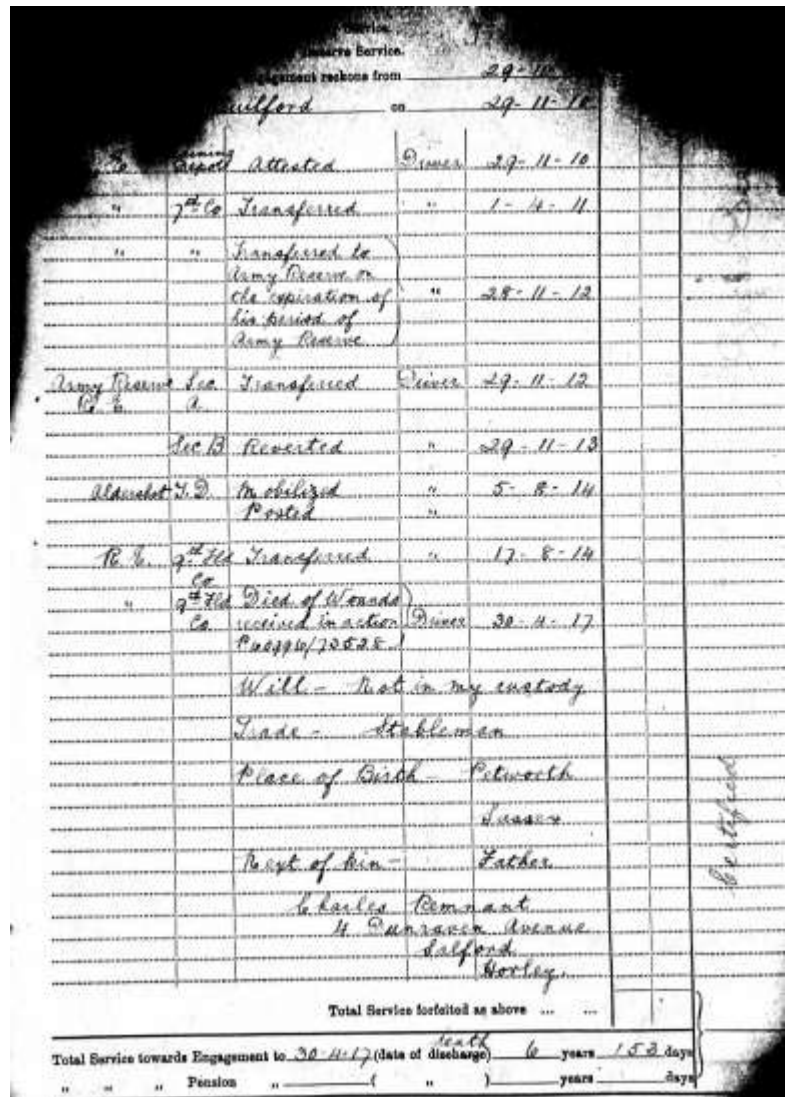 Service.
Reserve Service.
Engagement reckons from 29-11-
uilford on 29-11-10
R.E. Depot Attested Driver 29-11-10
" 7th Co Transferred " 1-4-11
" " Transferred to
Army Reserve on
the expiration of " 28-11-12
his period of
Army Reserve
Army Reserve Sec Transferred Driver 29-11-12
R.E. A.
Sec B Reverted " 29-11-13
Aldershot T.D. Mobilized " 5-8-14
Posted "
R.E. 9th Fld Transferred " 17-8-14
Co
" 9th Fld Died of Wounds
Co. received in action Driver 30-4-17
Will - Not in my custody
Trade - Stableman
Place of Birth - Petworth
Sussex
Next of Kin - Father
Charles Remnant
4 Dunraven Avenue
Salford
Horley.
Certified
Total Service forfeited as above ... ...
Total Service towards Engagement to 30-4-17 (date of discharge) death 6 years 153 days
" " " Pension " ( " ) years days